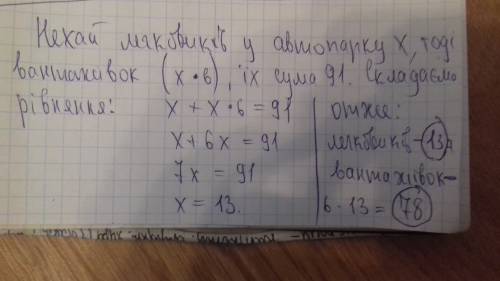 Нехай легковиків у автопарку x, тоді
вантажівок (x • 6), їх сума 91. Складаємо
рівняння:
x + x • 6 = 91
x + 6x = 91
7x = 91
x = 13.
отже:
легковиків – 13,
вантажівок –
6 · 13 = 78